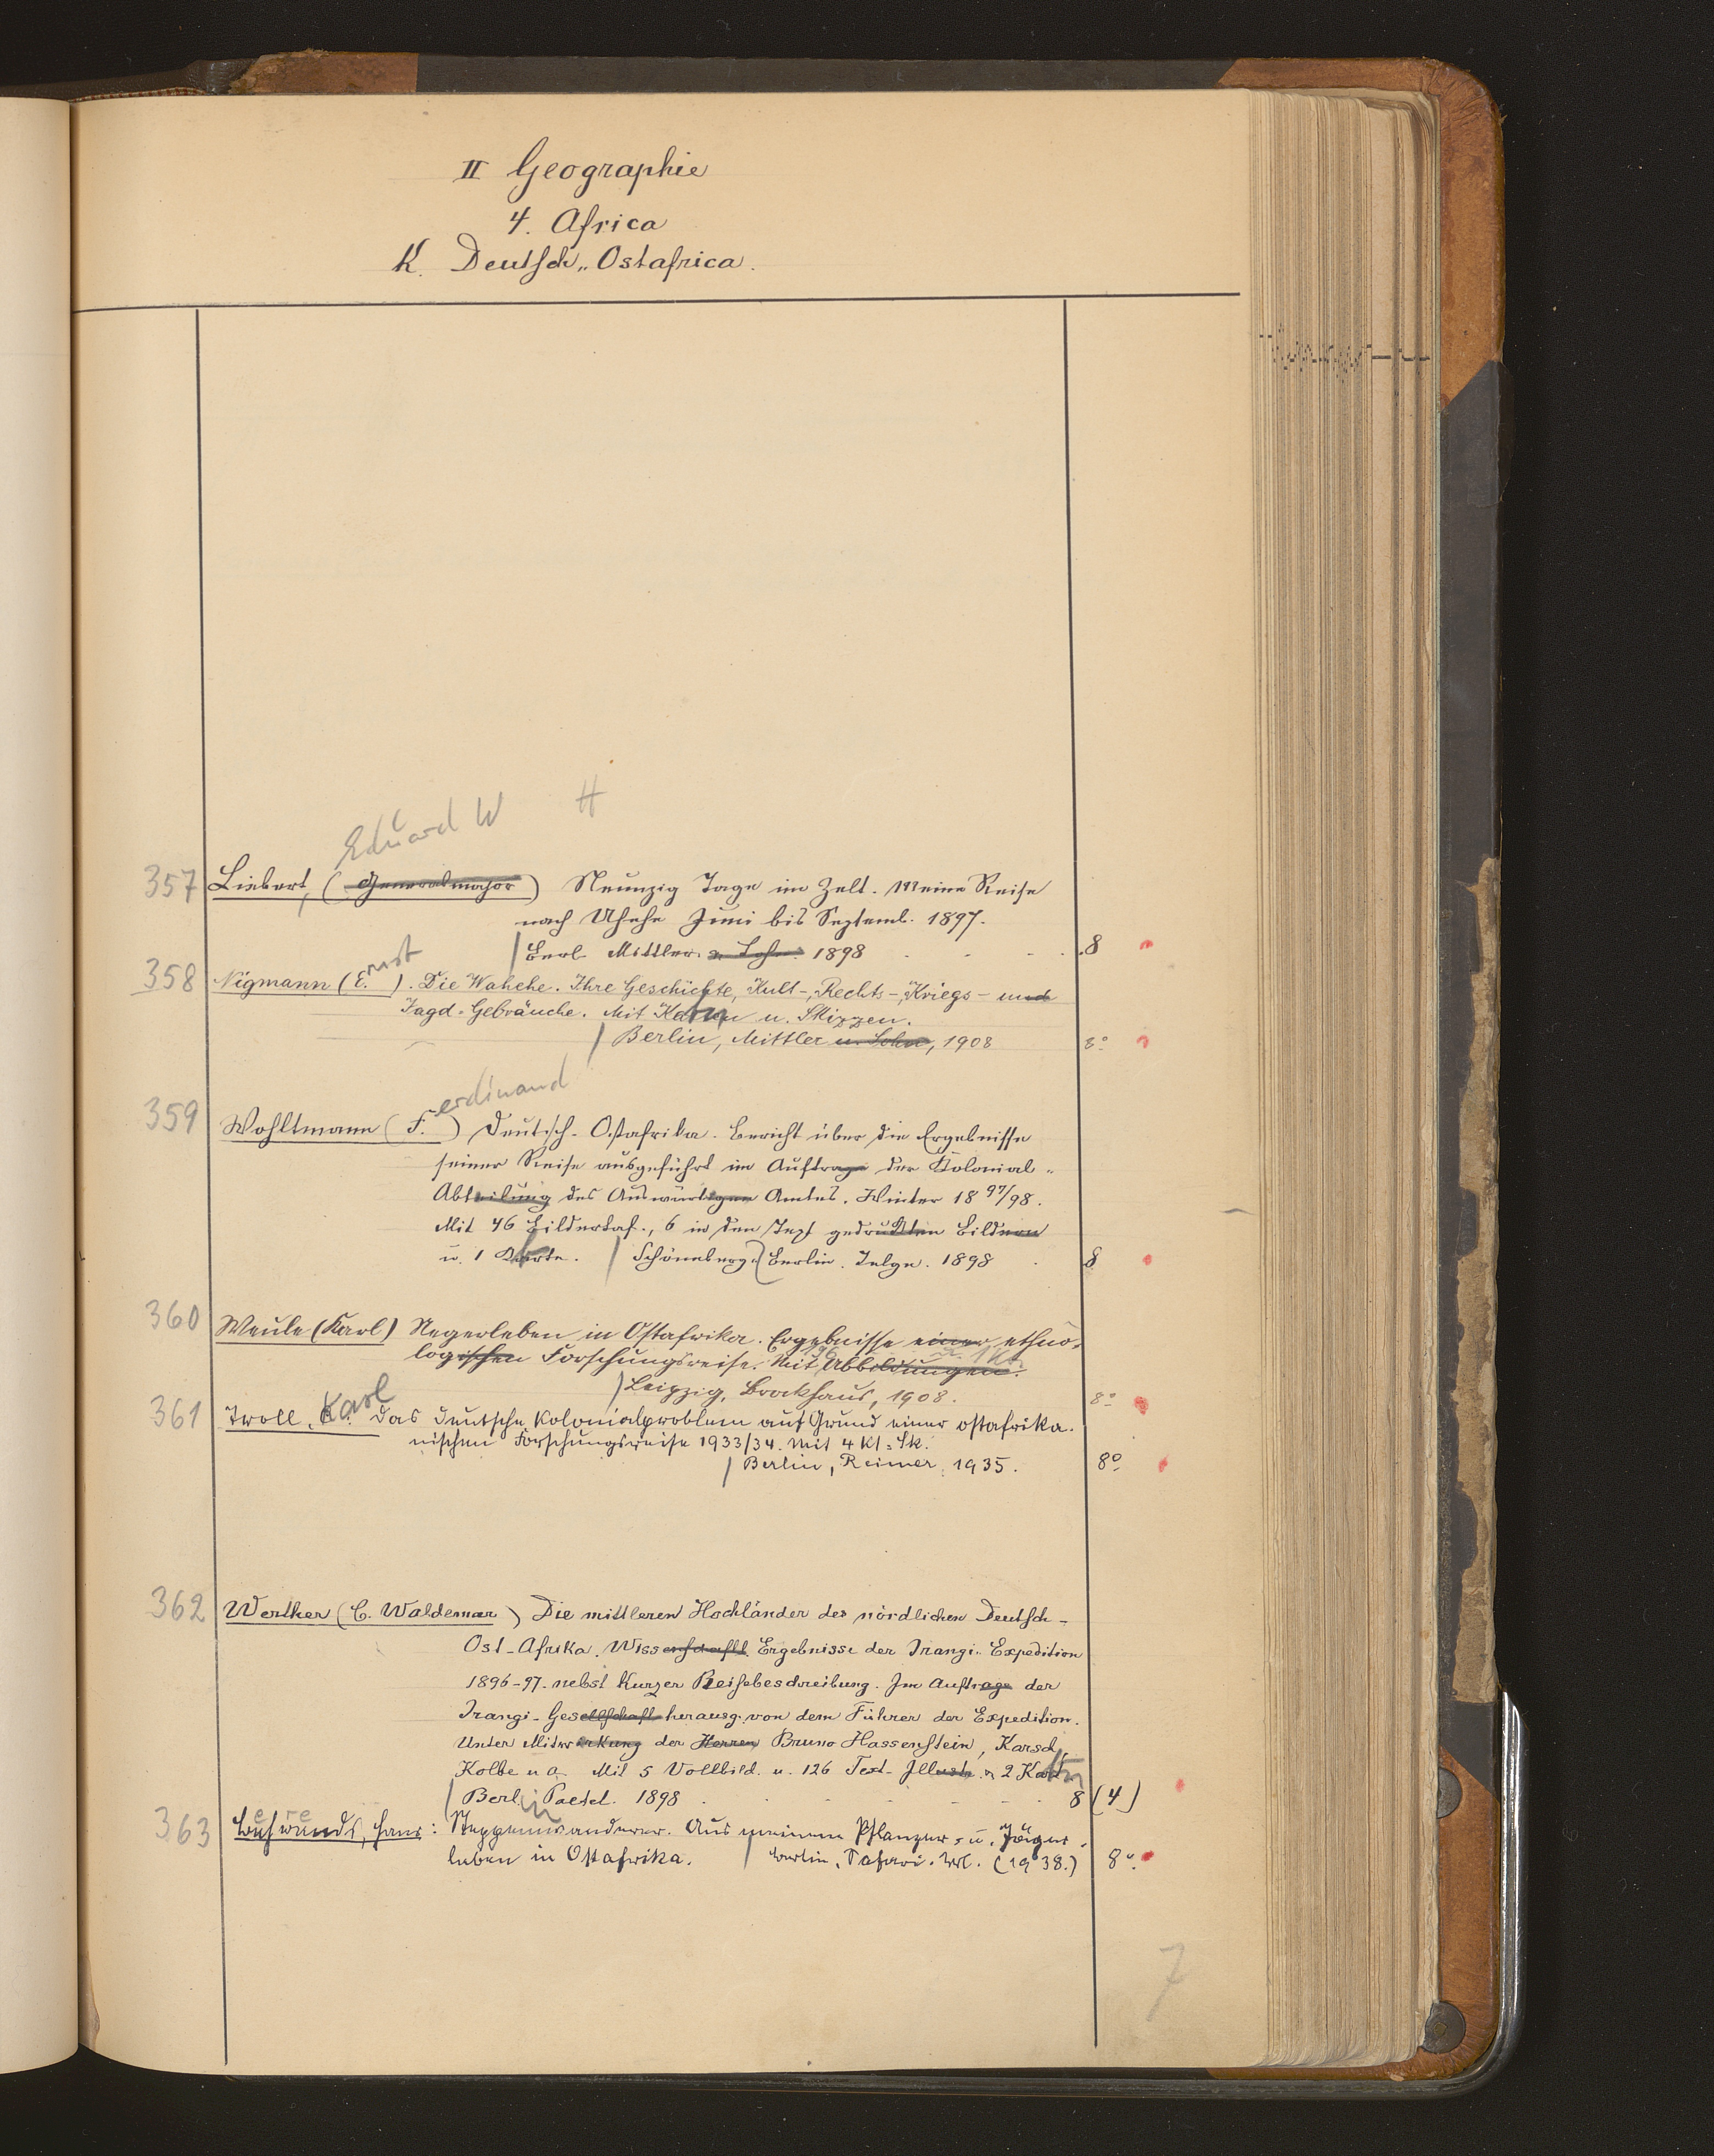 II Geographie
4. Africa
K. Deutsch-Ostafrica.
Eduard W H
357 Liebert, (Generalmajor) Neunzig Tage im Zelt. Meine Reise
nach Uhehe Juni bis Septemb. 1897.
Berl. Mittler u. Sohn 1898 . . . 8
358 Nigmann (Ernst). Die Wahehe. Ihre Geschichte, Kult-, Rechts-, Kriegs- und
Jagd-Gebräuche. Mit Karten u. Skizzen.
Berlin, Mittler u. Sohn, 1908 8°
359 Wohltmann (Ferdinand) Deutsch-Ostafrika. Bericht über die Ergebnisse
seiner Reise ausgeführt im Auftrage der Kolonial-
Abteilung des Auswärtigen Amtes. Winter 1897/98.
Mit 46 Bildertaf., 6 in den Text gedruckten Bildern
u. 1 Karte. Schöneberg-Berlin. Telge. 1898 . 8
360 Weule (Karl) Negerleben in Ostafrika. Ergebnisse einer ethno-
logischen Forschungsreise. Mit 196 Abbildungen. u. 1 Kt.
Leipzig, Brockhaus, 1908. 8°
361 Troll, Karl Das deutsche Kolonialproblem auf Grund einer ostafrika-
nischen Forschungsreise 1933/34. Mit 4 Kt.-Sk.
Berlin, Reimer, 1935. 8°
362 Werther (C. Waldemar) Die mittleren Hochländer des nördlichen Deutsch-
Ost-Afrika. Wissenschaftl. Ergebnisse der Irangi-Expedition
1896-97. nebst kurzer Reisebeschreibung. Im Auftrage der
Irangi-Gesellschaft herausg. von dem Führer der Expedition.
Unter Mitwirkung der Herren Bruno Hassenstein, Karsch,
Kolbe u. a. Mit 5 Vollbild. u. 126 Text-Illustr. u. 2 Karten
Berlin Paetel. 1898 . . . 8 (4)
363 Hans: Steppenwanderer. Aus meinem Pflanzer- u. Jäger-
leben in Ostafrika. Berlin, Safari-Verl. (1938.) 8°.
7